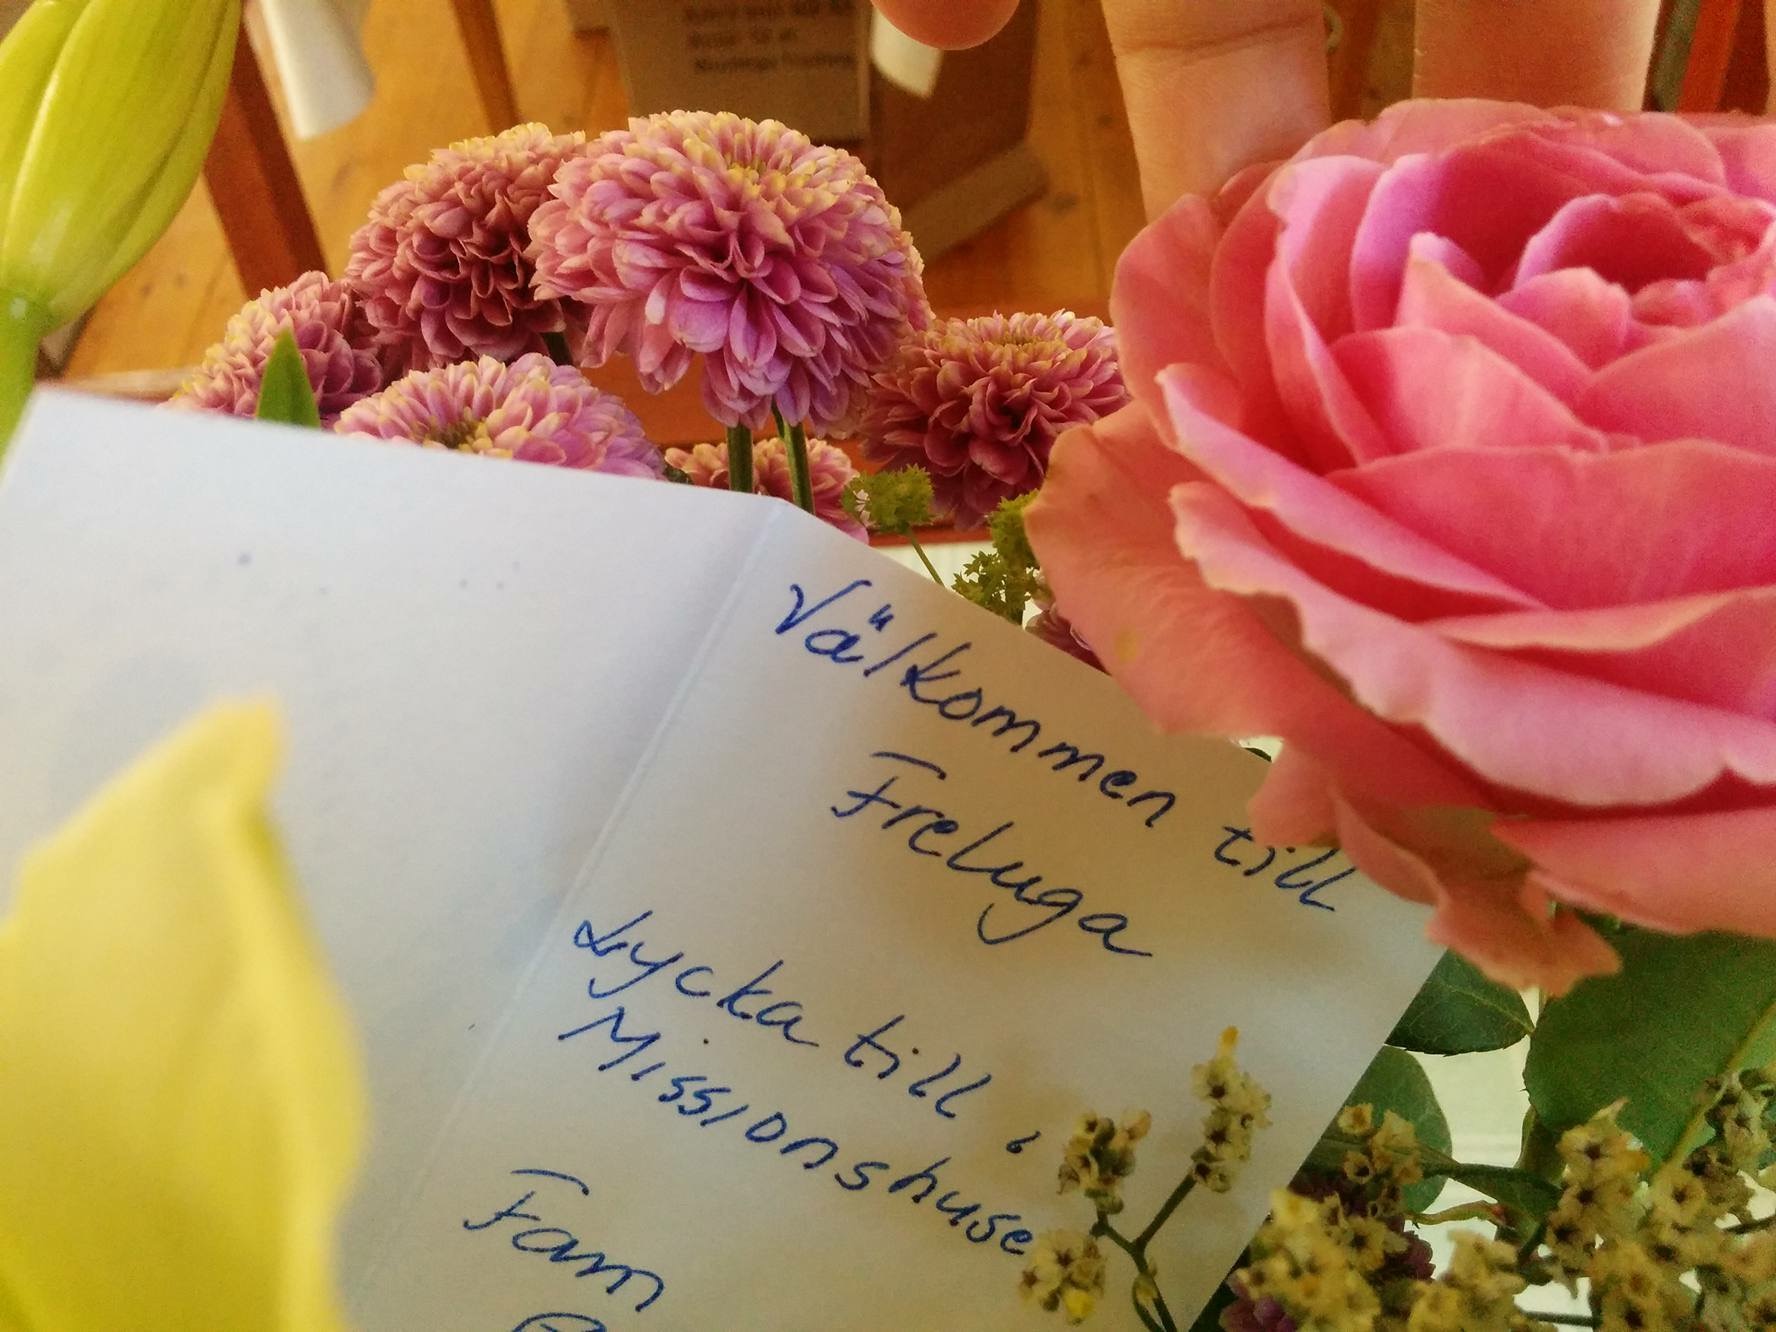 Välkommen till
Freluga
Lycka till i
Missionshuse
Fam